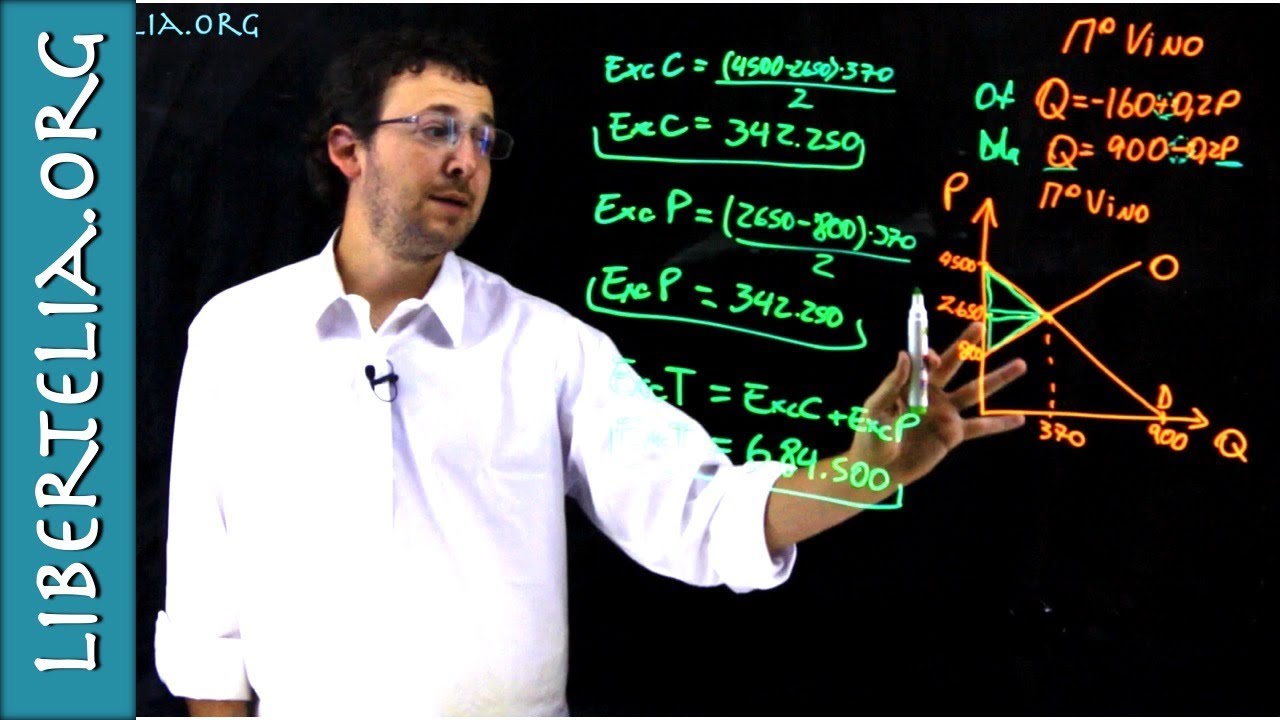 LIBERTELIA.ORG
LIA.ORG
ExcC = (4500-2650)·370
2
ExcC = 342.250
ExcP = (2650-800)·370
2
ExcP = 342.250
ExcT = ExcC + ExcP
= 684.500
Mº Vino
Of Q=-160+0,2P
Da Q=900-0,2P
Mº Vino
P
4500
2650
800
O
D
370
900
Q